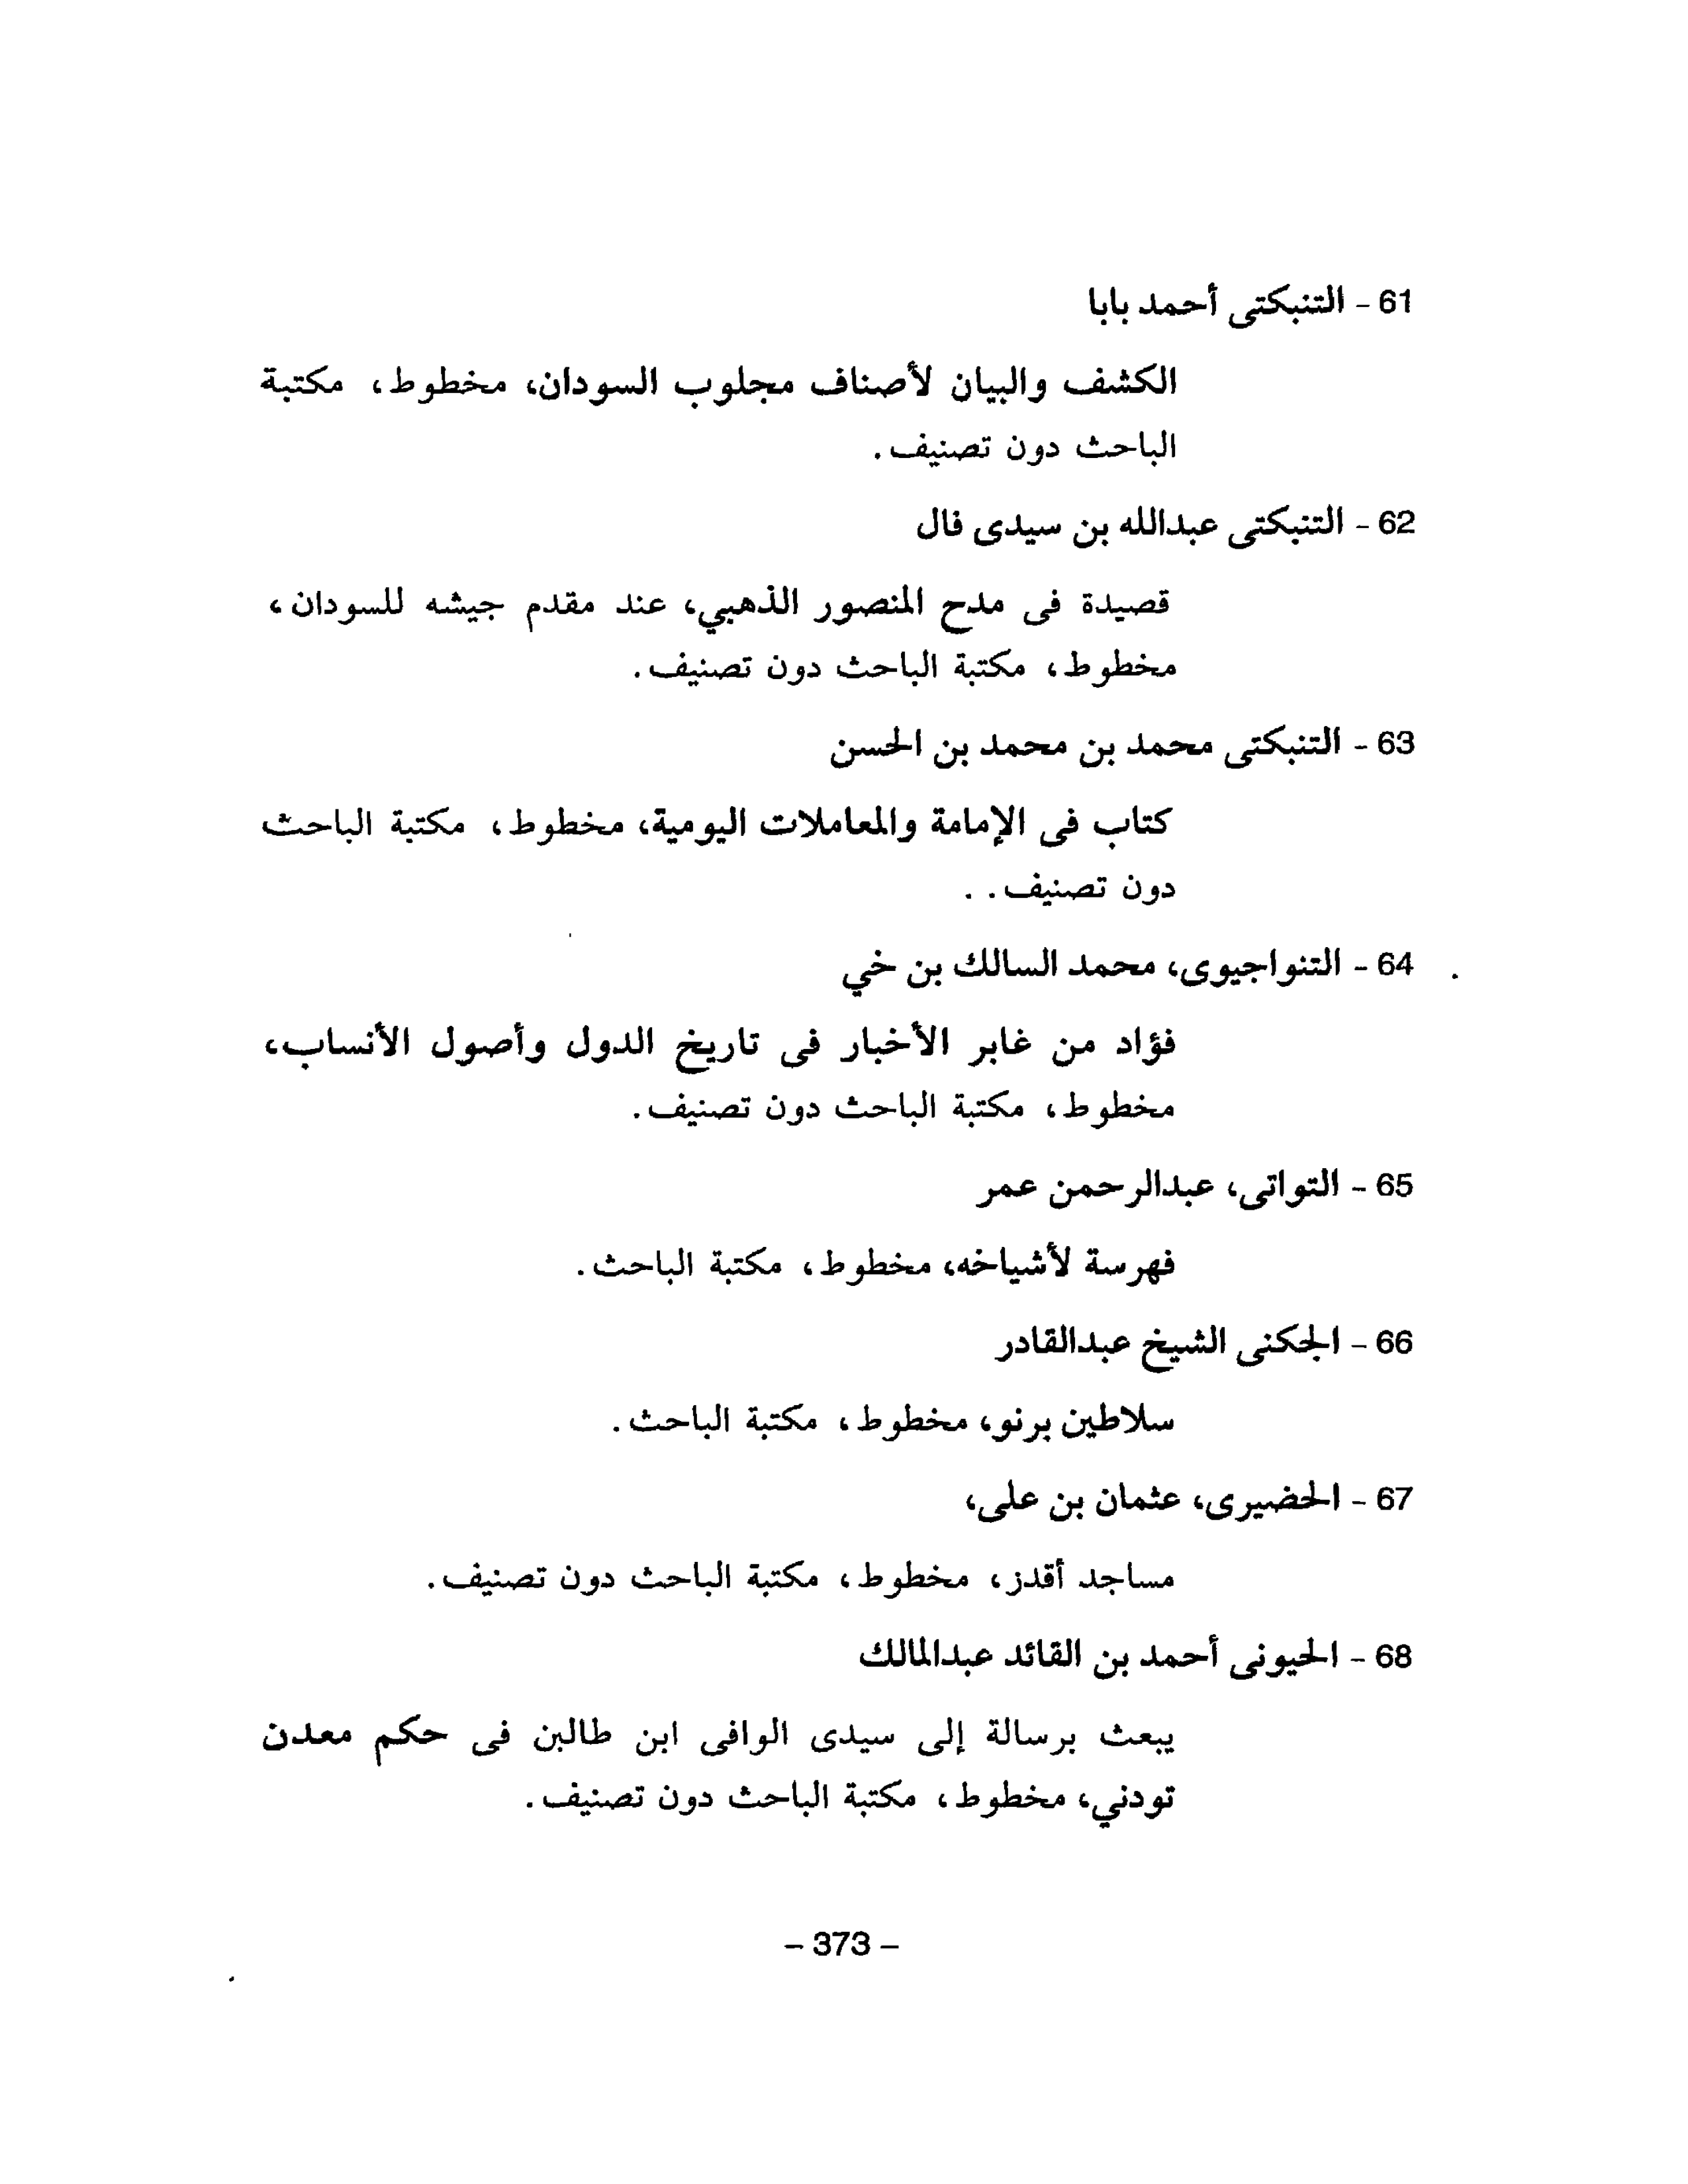 61 - التنبكتى أحمد بابا
الكشف والبيان لأصناف مجلوب السودان، مخطوط، مكتبة
الباحث دون تصنيف.
62 - التنبكتى عبدالله بن سيدى فال
قصيدة فى مدح المنصور الذهبي، عند مقدم جيشه للسودان،
مخطوط، مكتبة الباحث دون تصنيف.
63 - التنبكتى محمد بن محمد بن الحسن
كتاب فى الإمامة والمعاملات اليومية، مخطوط، مكتبة الباحث
دون تصنيف. .
64 - التنواجيوى، محمد السالك بن خي
فؤاد من غابر الأخبار فى تاريخ الدول وأصول الأنساب،
مخطوط، مكتبة الباحث دون تصنيف.
65 - التواتى، عبدالرحمن عمر
فهرسة لأشياخه، مخطوط، مكتبة الباحث.
66 - الجكنى الشيخ عبدالقادر
سلاطين برنو، مخطوط، مكتبة الباحث.
67 - الحضيرى، عثمان بن على،
مساجد أقدز، مخطوط، مكتبة الباحث دون تصنيف.
68 - الحيونى أحمد بن القائد عبدالمالك
يبعث برسالة إلى سيدى الوافى ابن طالبن فى حكم معدن
تودني، مخطوط، مكتبة الباحث دون تصنيف.
- 373 -